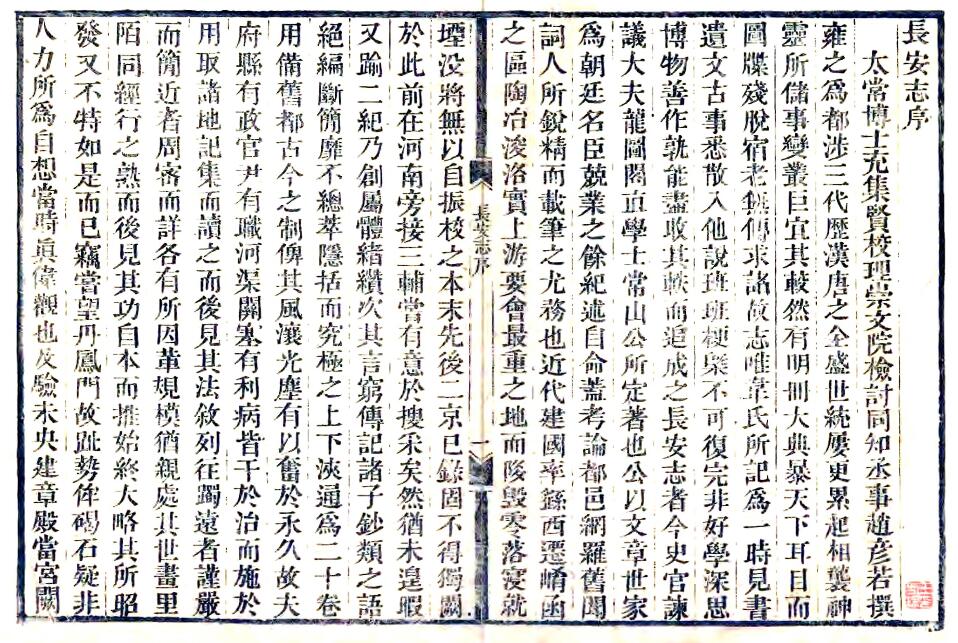 長安志序
太常博士充集賢校理崇文院檢討同知丞事趙彥若撰
雍之爲都涉三代歷漢唐之全盛世統屢更累起相襲神
靈所儲事變叢巨宜其較然有明冊大典暴天下耳目而
圖牒殘脫宿老無傳求諸故志唯韋氏所記爲一時見書
遺文古事悉散入他說班班梗槩不可復完非好學深思
博物善作孰能盡收其軼而追成之長安志者今史官諫
議大夫龍圖閣直學士常山公所定著也公以文章世家
爲朝廷名臣兢業之餘紀述自命蓋考論都邑網羅舊聞
詞人所銳精而載筆之尤務也近代建國率繇西遷崤函
之區陶冶浚洛實上游要會最重之地而陵毀零落寖就
堙没將無以自振校之本末先後二京已錄固不得獨闕
於此前在河南旁接三輔嘗有意於搜采矣然猶未遑暇
又踰二紀乃創屬體緒纘次其言窮傳記諸子鈔類之語
絕編斷簡靡不總萃隱括而究極之上下浹通爲二十卷
用備舊都古今之制俾其風瀼光塵有以奮於永久故夫
府縣有政官尹有職河渠關塞有利病皆干於治而施於
用取諸地記集而讀之而後見其法敘列往躅遠者謹嚴
而簡近者周密而詳各有所因革規模猶親處其世畫里
陌同經行之熟而後見其功自本而推始終大略其所昭
發又不特如是而已竊嘗望丹鳳門故趾勢侔碣石疑非
人力所爲自想當時眞偉觀也及驗未央建章嚴當宮闕
長安志序
一